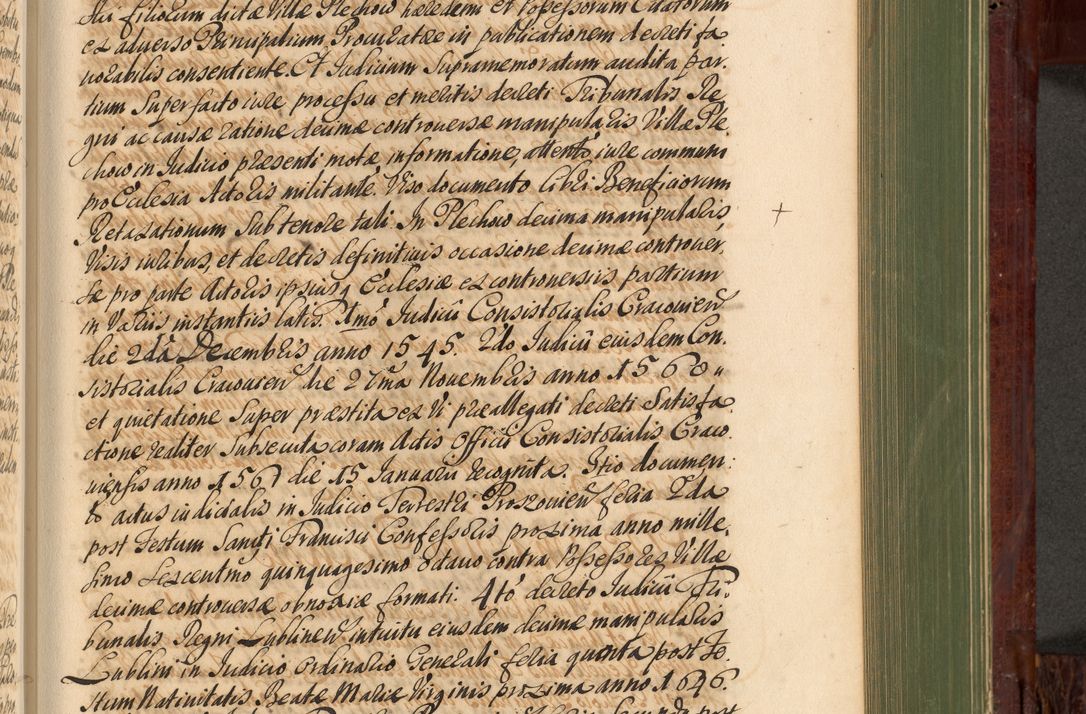 sui filiorum dictæ Villæ Plechow hæredem et Possessorum Citatorum
ex adverso Principalium Procuratore in publicationem decreti fa
vorabilis consentiente. Et Judicium Supramemoratum audita par,
tium Superfacto iure processu et meritis decreti Tribunalis Re
gni ac causæ ratione decimæ controversæ manipularis Villæ Ple,
chow in Judicio præsenti motæ informatione, attento iure communi
pro Ecclesia Actoris militante. Viso documento Libri Beneficiorum
Retaxationum Sub tenore tali. In Plechow decima manipularis
Visis iuribus, et decretis definitivis occasione decimæ controver,
sæ pro parte Actoris ipsiusq Ecclesiæ ex controversiis partium
in Variis instantiis latis. Pmo Judicii Consistorialis Cracovien
die 2da Decembris anno 1545. 2do Judicii eiusdem Con,
sistorialis Cracovien die 27ma Novembris anno 1560 "
et quietatione Super præstita ex Vi præallegati decreti Satisfa
ctione realiter Subsecuta coram Actis Officii Consistorialis Craco
viensis anno 1561 die 15 Januarii recognita. 3tio documen:
to actus iudicialis in Judicio Terrestri Proszovien feria 2da
post Festum Sancti Francisci Confessoris proxima anno mille,
simo sexcentmo quinquagesimo octavo contra Possessores Villæ
decimæ controversæ obnoxiæ formati. 4to decreto Judicii Tri,
bunalis Regni Lublinen intuitu eiusdem decimæ manipularis
Lublini in Judicio ordinario Generali feria quinta post Fe,
stum Nativitatis Beatæ Mariæ Virginis proxima anno 1646.